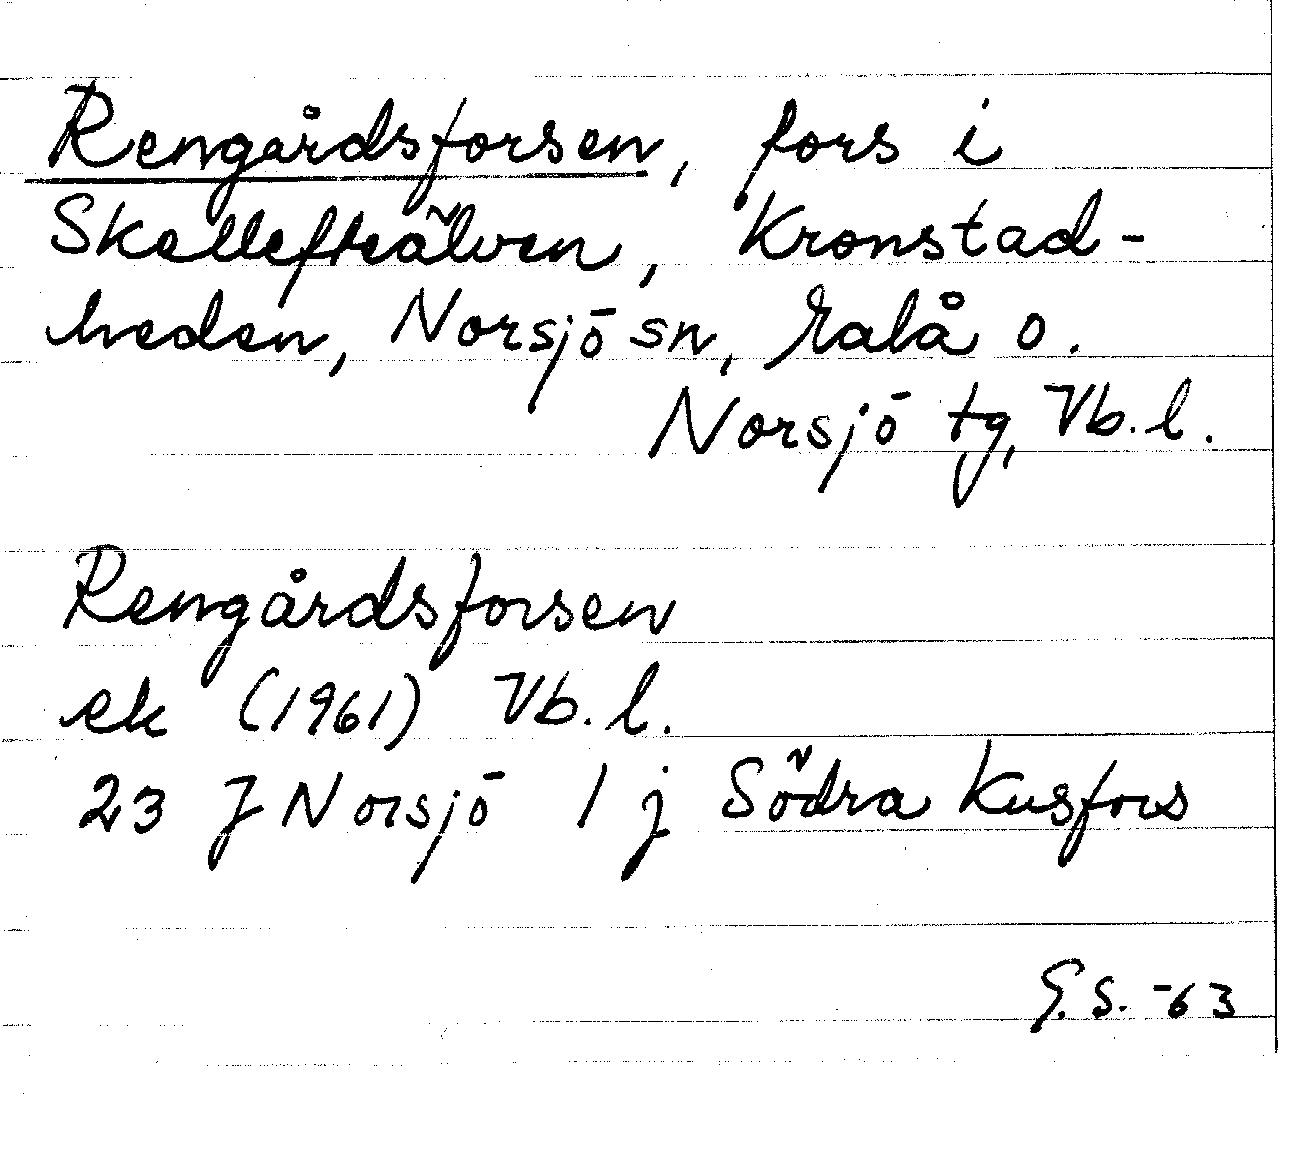 Rengårdsforsen, fors i
Skellefteälven, Kronstad-
heden, Norsjö sn, Malå o.
Norsjö tg, Vb. l.
Rengårdsforsen
ek (1961) Vb. l.
23 J Norsjö 1 j Södra Kusfors
G.S. -63